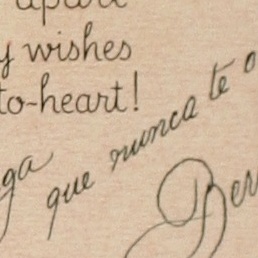 apart
y wishes
to-heart!
ga que nunca te o
Ber